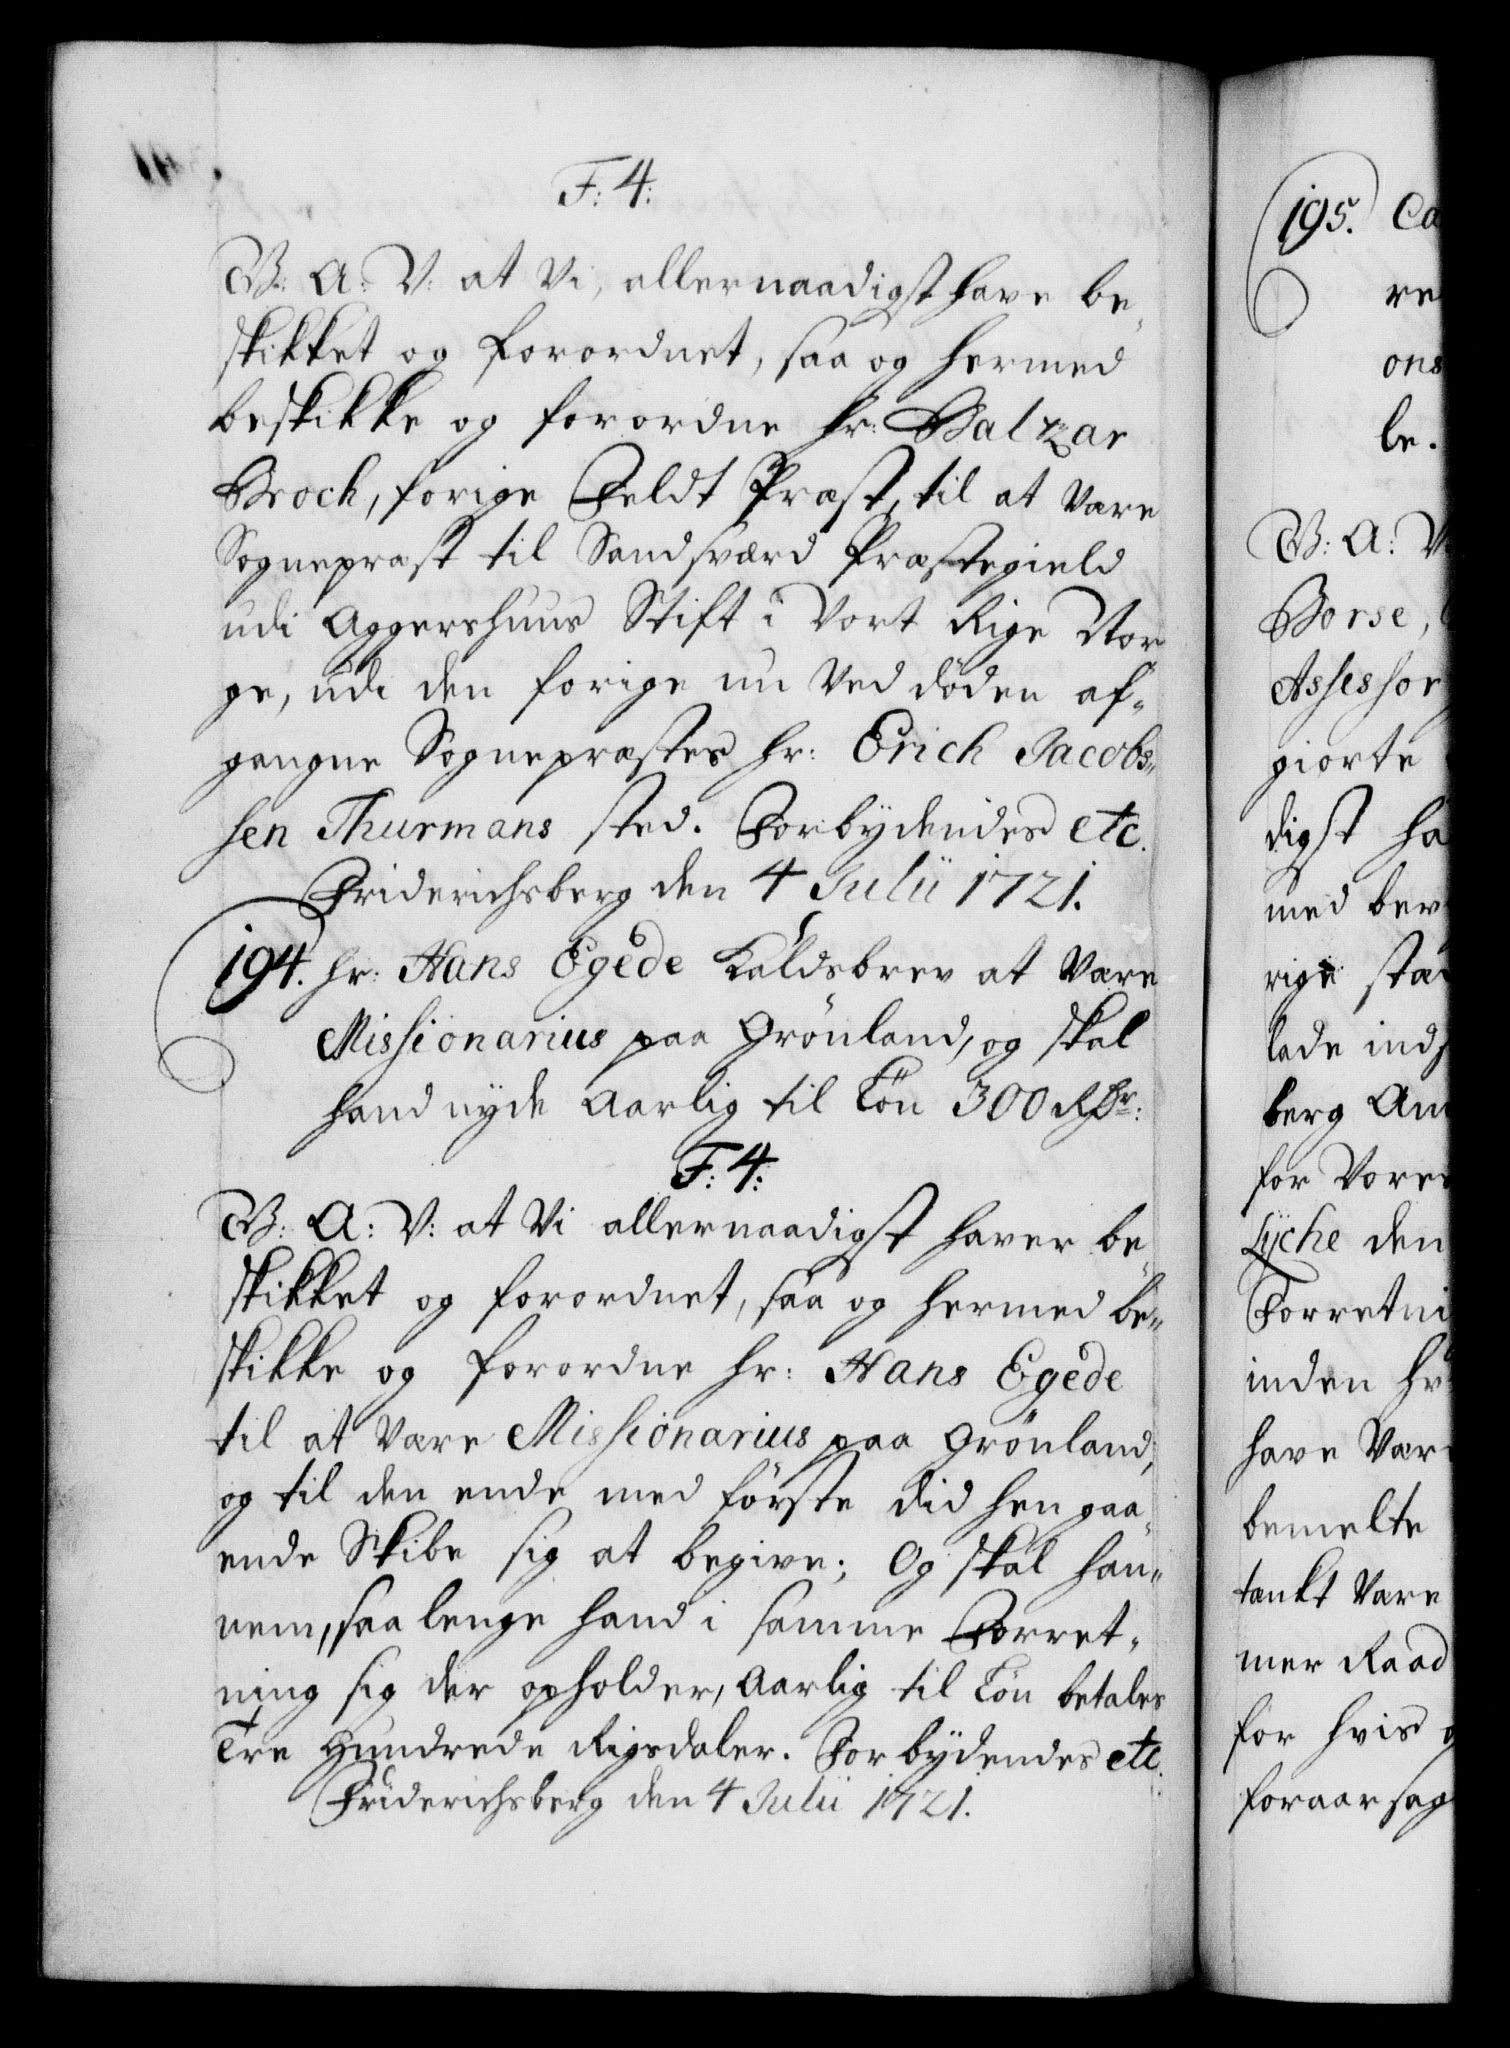 F: 4:
G: A: V: at Vi, allernaadigst have be,,
skikket og forordnet, saa og hermed
beskikke og forordne Hr: Balzar
Broch, forige Feldt Præst, til at være
Sognepræst til Sandsværd Præstegield
udi Aggershuus Stift i Vort Rige Nor,,
ge, udi den forige nu ved döden af,,
gangne Sognepræstes Hr: Erich Jacobs,,
sen Thurmans sted. Forbydendes etc.
Friderichsberg den 4 Julii 1721.
194. Hr: Hans Egede Kaldsbrev at være
Missionarius paa Grönland, og skal
hand nyde Aarlig til Lön 300 Rdr:
F: 4:
G: A: V: at Vi allernaadigst haver be,,
skikket og forordnet, saa og hermed be,,
skikke og forordne Hr: Hans Egede
til at være Missionarius paa Grönland,
og til den ende med förste did hen gaa,,
ende Skibe sig at begive; Og skal han,,
nem, saa lenge hand i samme Forret,,
ning sig der opholder, Aarlig til Lön betales
Tre Hundrede Rigsdaler. Forbydendes etc.
Friderichsberg den 4 Julii 1721.
195. Ca
re
ons
le.
G: A: V
Borse,
Assessor
giorte
digst ha
med bev
rige sta
lade ind
berg Am
for Vores
Lyche den
Forretni
inden Hr
have Vær
bemelte
tænkt Være
mer Raad
for hvis
foraarsag